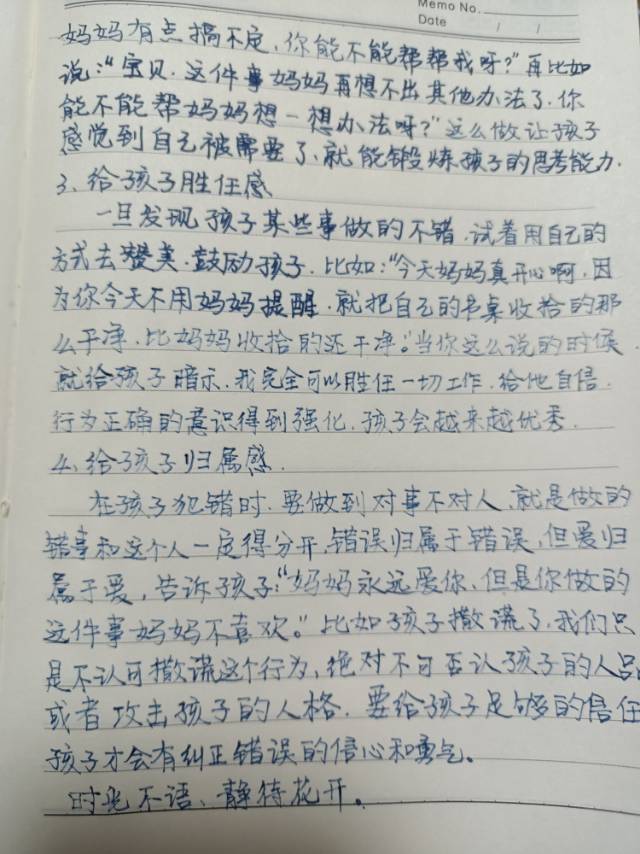 Memo No.
Date / /
妈妈有点搞不定，你能不能帮帮我呀？”再比如
说：“宝贝，这件事妈妈再想不出其他办法了，你
能不能帮妈妈想一想办法呀？”这么做让孩子
感觉到自己被需要了、就能锻炼孩子的思考能力.
3、给孩子胜任感
一旦发现孩子某些事做的不错.试着用自己的
方式去赞美.鼓励孩子.比如：“今天妈妈真开心啊，因
为你今天不用妈妈提醒.就把自己的书桌收拾的那
么干净.比妈妈收拾的还干净。”当你这么说的时候.
就给孩子暗示.我完全可以胜任一切工作.给他自信.
行为正确的意识得到强化.孩子会越来越优秀.
4、给孩子归属感.
在孩子犯错时.要做到对事不对人.就是做的
错事和这个人一定得分开.错误归属于错误，但爱归
属于爱，告诉孩子：“妈妈永远爱你，但是你做的
这件事妈妈不喜欢。”比如孩子撒谎了.我们只
是不认可撒谎这个行为、绝对不可否认孩子的人品
或者攻击孩子的人格.要给孩子足够的信任
孩子才会有纠正错误的信心和勇气。
时光不语、静待花开。